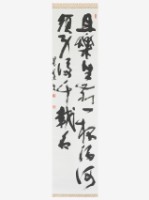 且樂生前一杯酒何
須身後千載名